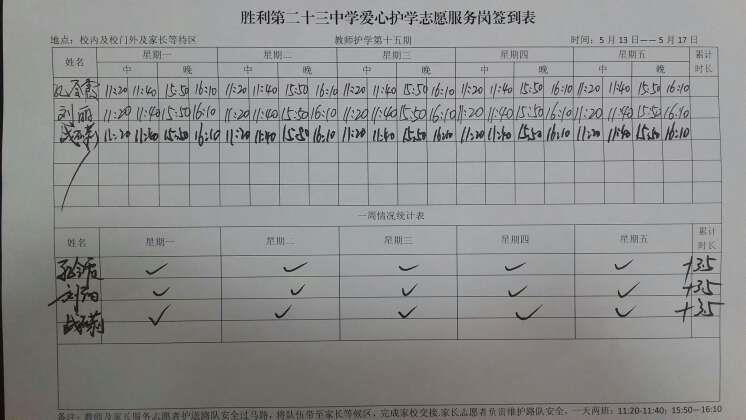 胜利第二十三中学爱心护学志愿服务岗签到表
地点：校内及校门外及家长等待区 教师护学第十五期 时间：5 月 13 日—— 5 月 17 日
姓名 星期一 星期二 星期三 星期四 星期五 累计时长
中 晚 中 晚 中 晚 中 晚 中 晚
11:20 11:40 15:50 16:10 11:20 11:40 15:50 16:10 11:20 11:40 15:50 16:10 11:20 11:40 15:50 16:10 11:20 11:40 15:50 16:10
刘丽 11:20 11:40 15:50 16:10 11:20 11:40 15:50 16:10 11:20 11:40 15:50 16:10 11:20 11:40 15:50 16:10 11:20 11:40 15:50 16:10
11:20 11:40 15:50 16:10 11:20 11:40 15:50 16:10 11:20 11:40 15:50 16:10 11:20 11:40 15:50 16:10 11:20 11:40 15:50 16:10
一周情况统计表
姓名 星期一 星期二 星期三 星期四 星期五 累计时长
✓ ✓ ✓ ✓ ✓ +3.5
✓ ✓ ✓ ✓ ✓ +3.5
✓ ✓ ✓ ✓ ✓ +3.5
备注：教师及家长服务志愿者护送路队安全过马路，将队伍带至家长等候区，完成家校交接.家长志愿者负责维护路队安全，一天两班：11:20-11:40；15:50—16:10